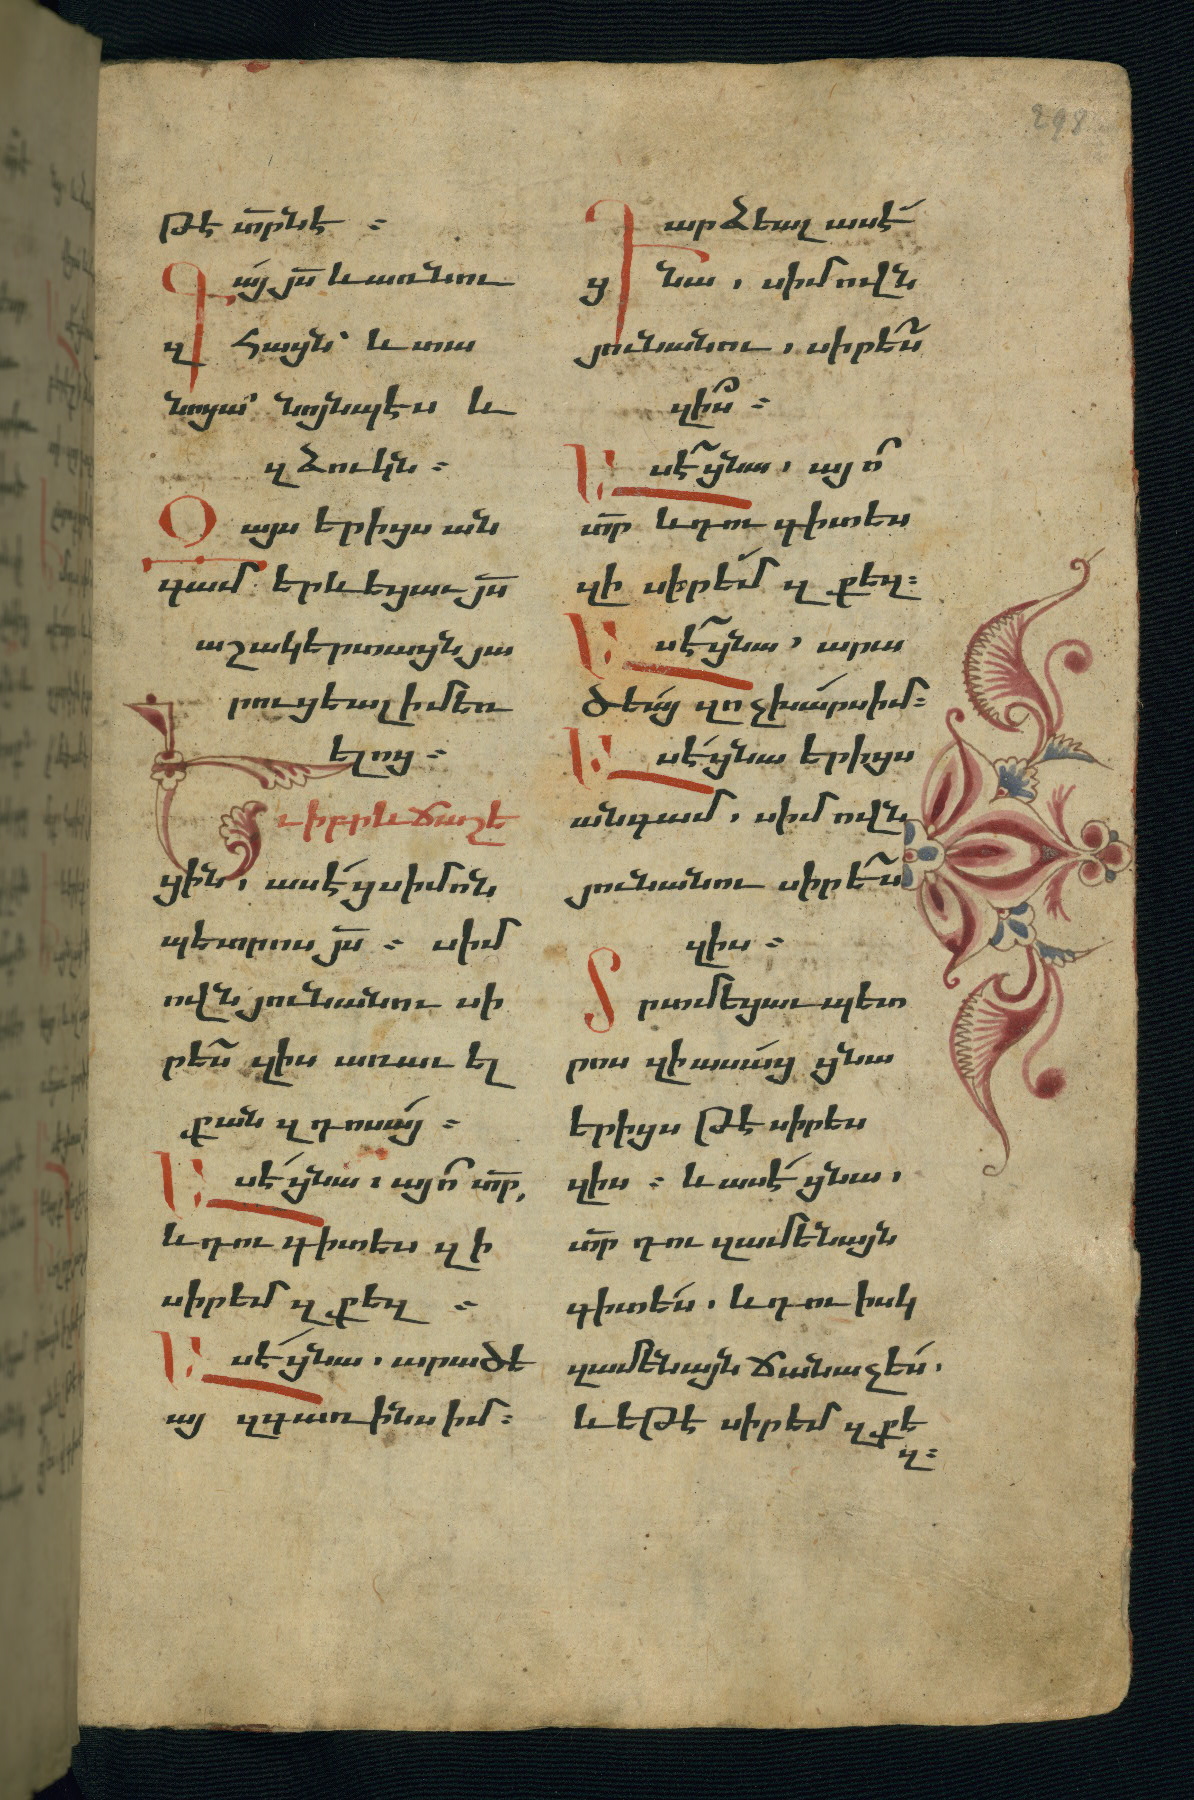 298
թէ տ̅րնէ ։
Գ այ յս̅ և առնու
զ հացն՝ և տա
նոցա՝ նոյնպէս և
զ ձուկն ։
Օ այս երիցս ան
գամ երևեցաւ յս̅
աշակերտացն յա
րուցեալ ի մեռ
ելոց ։
Եւ իբրև ճաշե
ցին, ասէ ցսիմոն
պետրոս յս̅ ։ սիմ
ովն յունանու սի
րես զիս առաւել
քան զդոսայ ։
Ասէ ցնա, այո՛ տ̅ր,
և դու գիտես զի
սիրեմ զքեզ ։
Ասէ ցնա, արածե
այ զգառինս իմ ։
Դարձեալ ասէ
ց նա, սիմովն
յունանու, սիրես
զիս ։
Ասէ ցնա, այո
տ̅ր և դու գիտես
զի սիրեմ զքեզ ։
Ասէ ցնա, արա
ծեայ զոչխարսիմ ։
Ասէ ցնա երիցս
անգամ, սիմովն
յունանու սիրես
զիս ։
Տրտմեցաւ պետ
րոս զի ասաց ցնա
երիցս թէ սիրես
զիս ։ և ասէ ցնա,
տ̅ր դու զամենայն
գիտես, և դու իսկ
զամենայն ճանաչես,
և եթէ սիրեմ զքե
զ ։